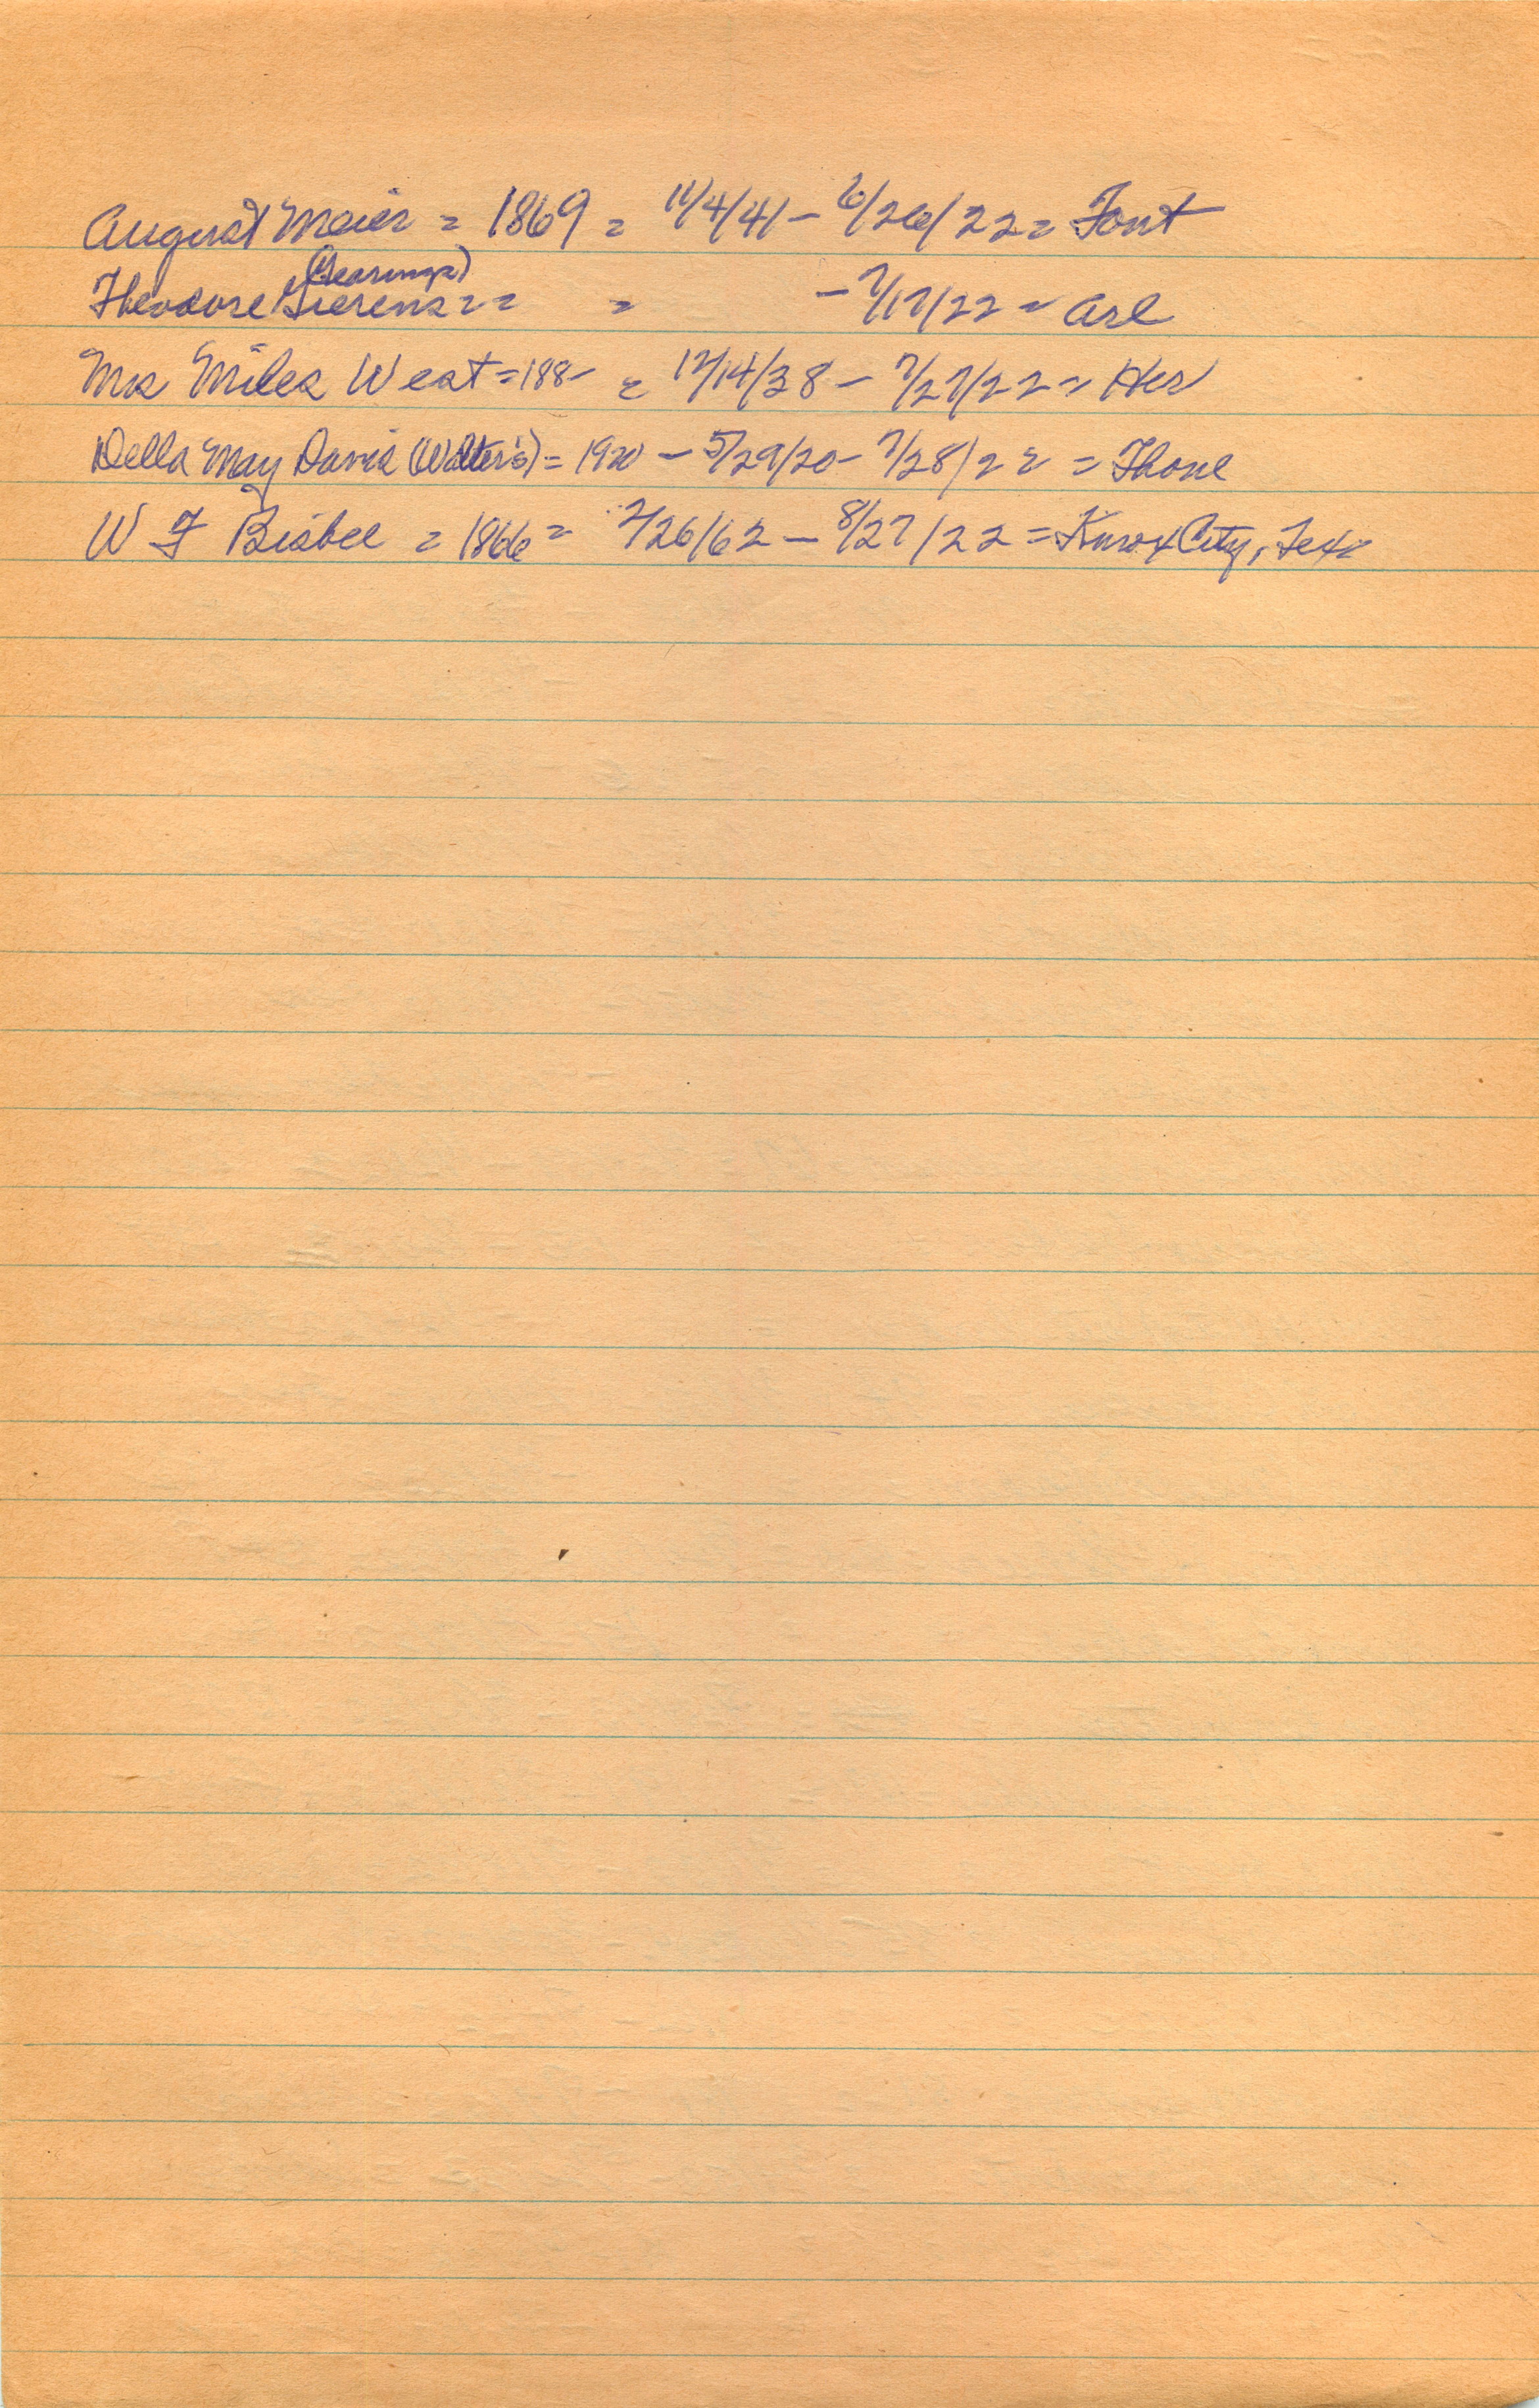 August Meier = 1869 = 11/4/41 - 6/26/22 = Font
(Gearings)
Theodore Gierens = = = - 7/17/22 = Arl
Mrs Miles West = 188- = 12/14/38 - 7/27/22 = Her
Della May Davis (Walter's) = 1920 - 5/29/20 - 7/28/22 = Thone
W F Bisbee = 1866 = 2/26/62 - 8/27/22 = Knox City, Texas